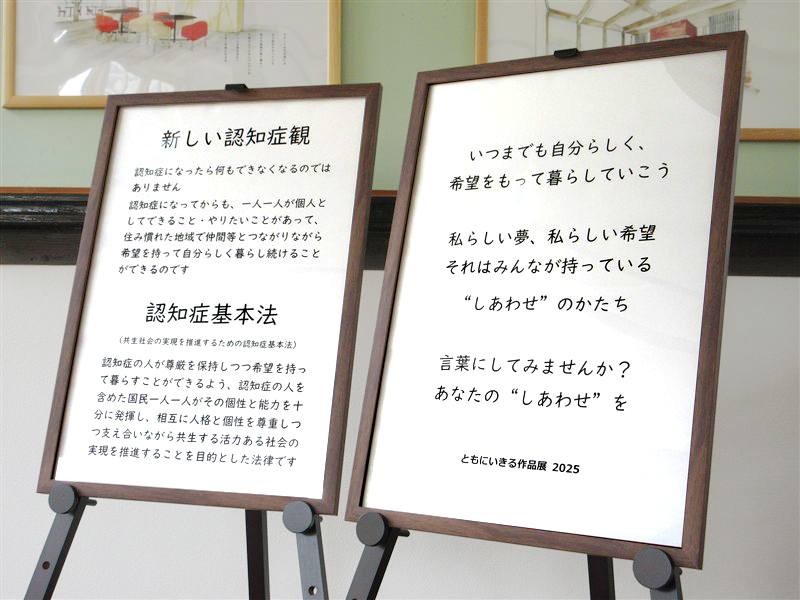 新しい認知症観
認知症になったら何もできなくなるのでは
ありません
認知症になってからも、一人一人が個人と
してできること・やりたいことがあって、
住み慣れた地域で仲間等とつながりながら
希望を持って自分らしく暮らし続けること
ができるのです
認知症基本法
（共生社会の実現を推進するための認知症基本法）
認知症の人が尊厳を保持しつつ希望を持っ
て暮らすことができるよう、認知症の人を
含めた国民一人一人がその個性と能力を十
分に発揮し、相互に人格と個性を尊重しつ
つ支え合いながら共生する活力ある社会の
実現を推進することを目的とした法律です
いつまでも自分らしく、
希望をもって暮らしていこう
私らしい夢、私らしい希望
それはみんなが持っている
“しあわせ”のかたち
言葉にしてみませんか？
あなたの“しあわせ”を
ともにいきる作品展 2025